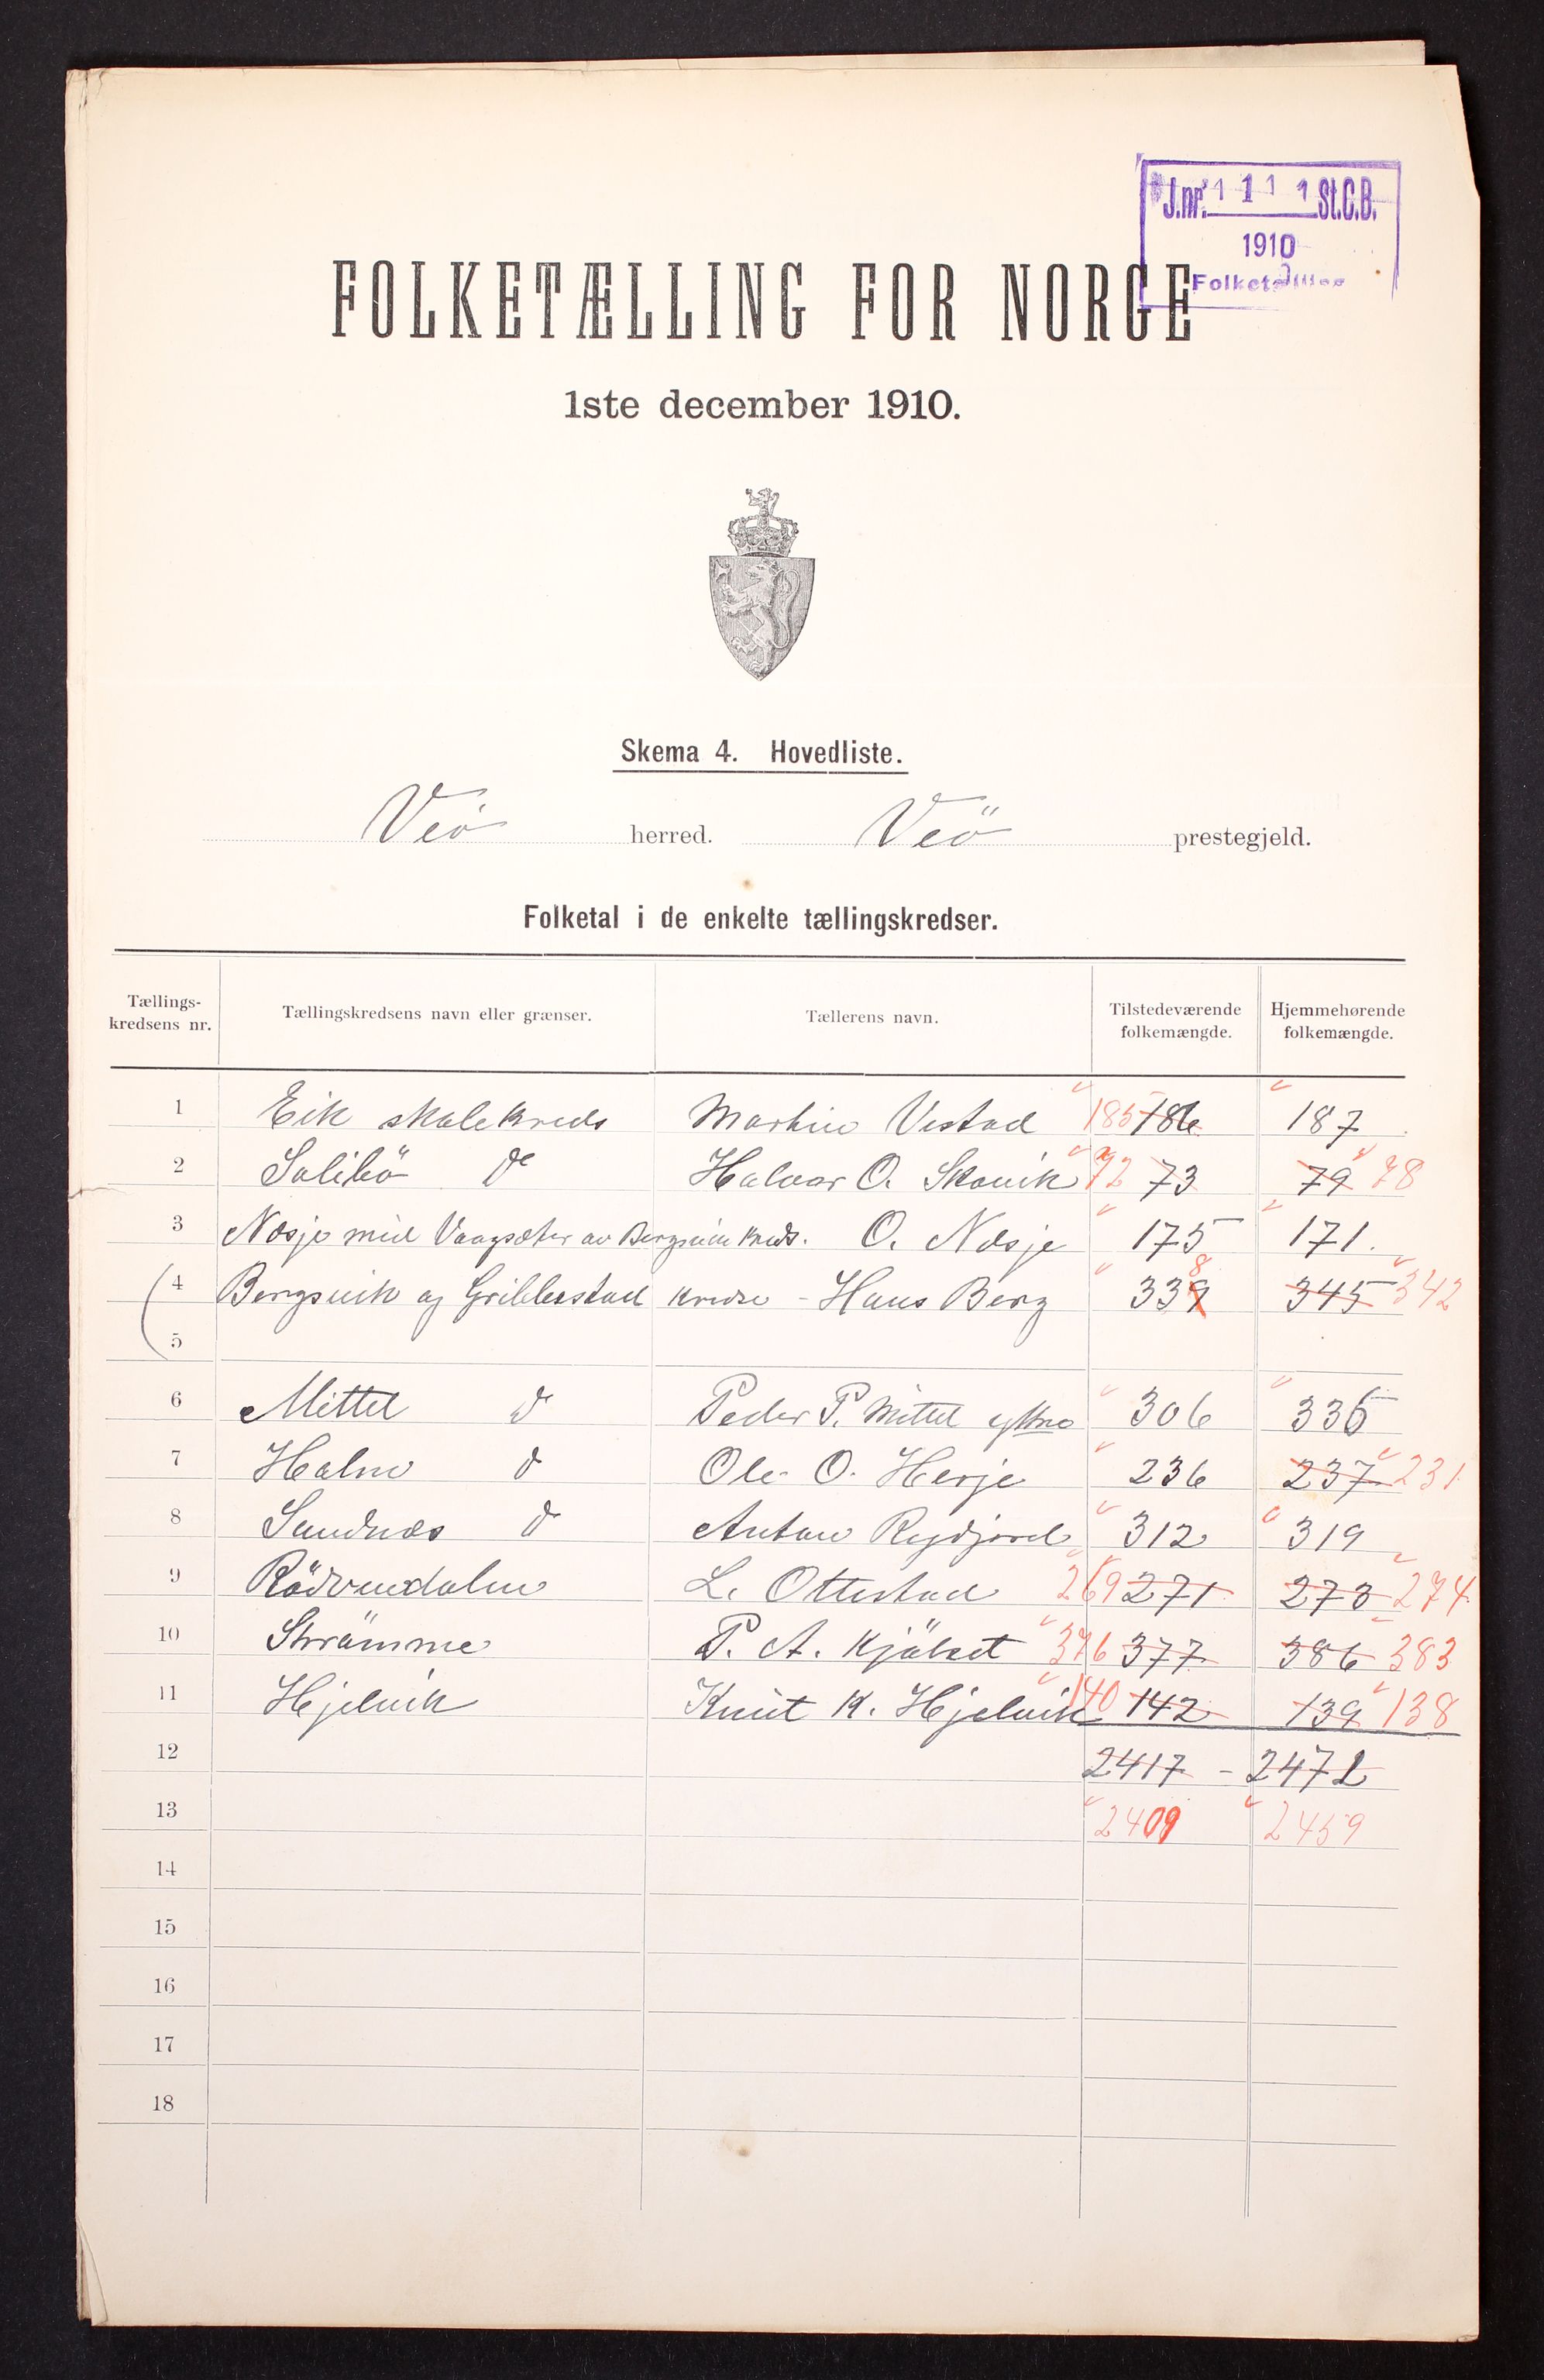 J.nr. 1 1 1 1 St.C.B.
1910
Folketælling
FOLKETÆLLING FOR NORGE
1ste december 1910.
Skema 4. Hovedliste.
Veö herred. Veö prestegjeld.
Folketal i de enkelte tællingskredser.
Tællings-kredsens nr. Tællingskredsens navn eller grænser. Tællerens navn. Tilstedeværende folkemængde. Hjemmehørende folkemængde.
1 Eik skolekreds Martin Vestad 185 186 187
2 Solibö do Halvor O. Skovik 72 73 79 78
3 Nesje med Vaagsæter av Bergsvik kreds. O. Nesje 175 171.
4 Bergsvik og Gribbestad kredse - Hans Berg 339 8 345 342
5
6 Mittet do Peder P. Mittet 306 335
7 Holm do Ole O. Herje 236 237 231
8 Sandnes do Anton Rydjord 312 319
9 Rödvendalen L. Ottestad 269 271 273 274
10 Strömme P. A. Kjölset 376 377 386 383
11 Hjelvik Knut K. Hjelvik 140 142 139 138
12 2417 - 2471
13 2409 2459
14
15
16
17
18